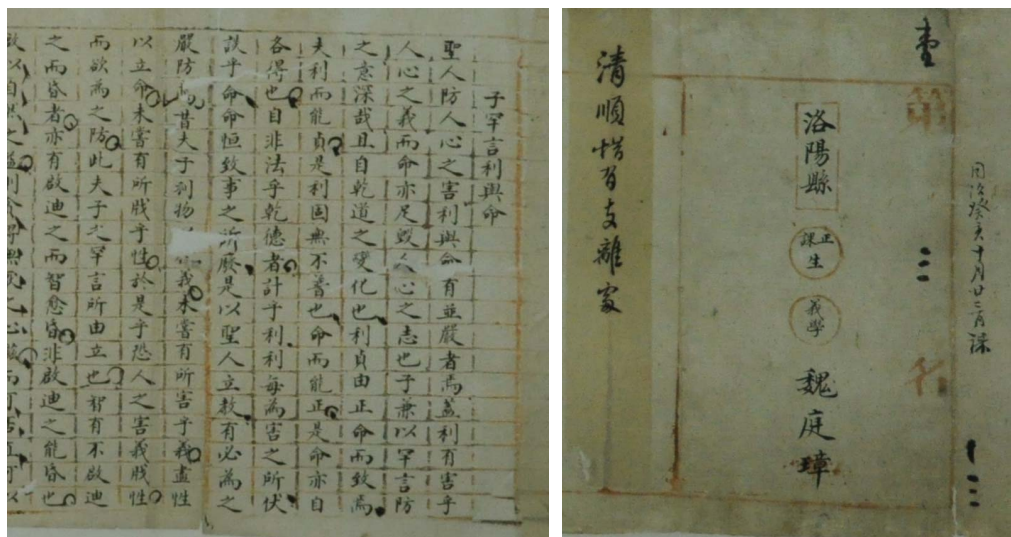 同治癸亥十月廿二日課
壹
第 名
洛陽縣
正課生
義學
魏庭璋
清順惜首支離
子罕言利與命
聖人防人心之害利與命有並嚴者焉蓋利有害乎
人心之義而命亦足毀人心之志也子兼以罕言防
之意深哉且自乾道之變化也利貞由正命而致焉
夫利而能貞是利固無不普也命而能正是命亦自
各得也自非法乎乾德者計乎利利每為害之所伏
談乎命命恒致事之所廢是以聖人立教有必為之
嚴防焉昔夫子利物義未嘗有所害乎義盡性
以立命未嘗有所戕乎性於是乎恐人之害義戕性
而欲為之防此夫子之罕言所由立也智有不啟迪
之而昏者亦有啟迪之而智愈昏非啟迪之能昏也